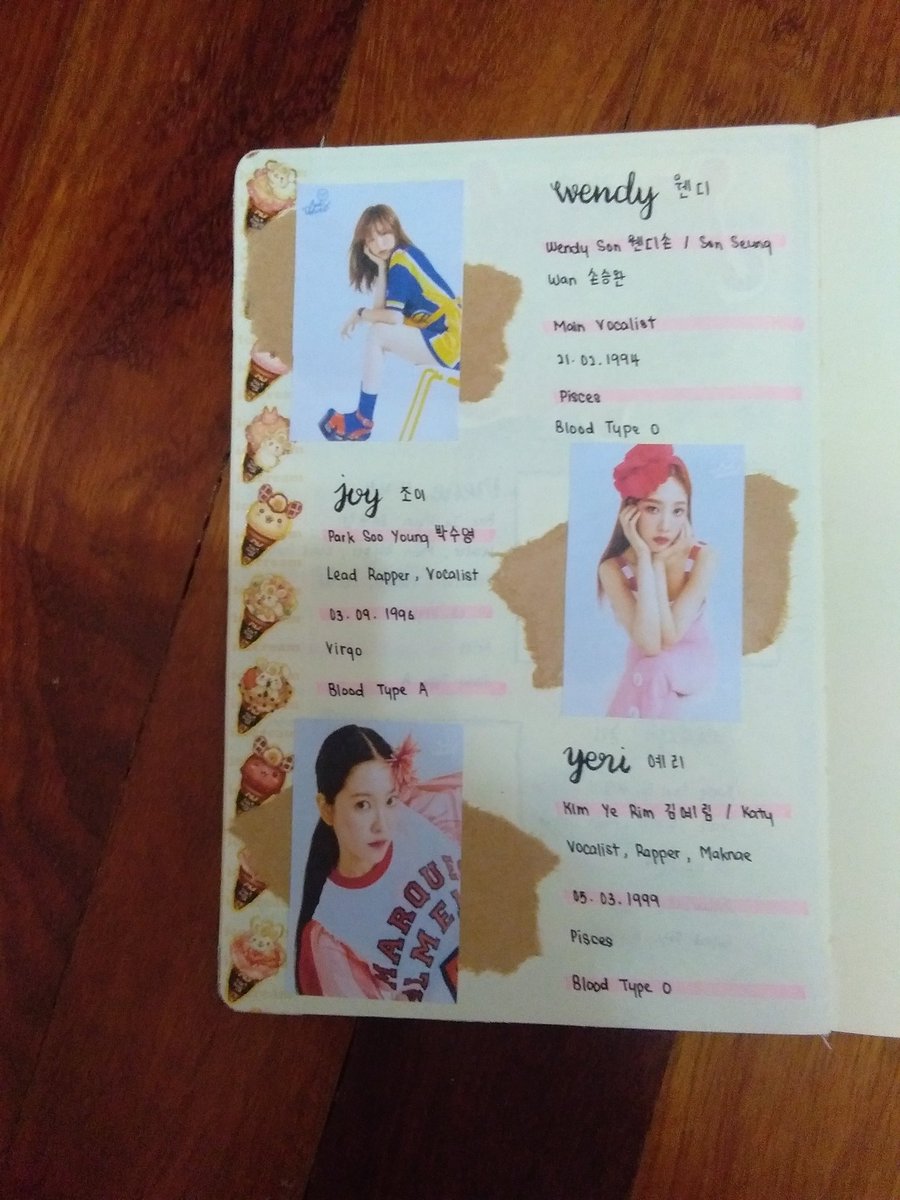 wendy 웬디
Wendy Son 웬디손 / Son Seung
Wan 손승완
Main Vocalist
21. 02. 1994
Pisces
Blood Type O
joy 조이
Park Soo Young 박수영
Lead Rapper, Vocalist
03. 09. 1996
Virgo
Blood Type A
yeri 예리
Kim Ye Rim 김예림 / Katy
Vocalist, Rapper, Maknae
05. 03. 1999
Pisces
Blood Type O
MARQU
LME